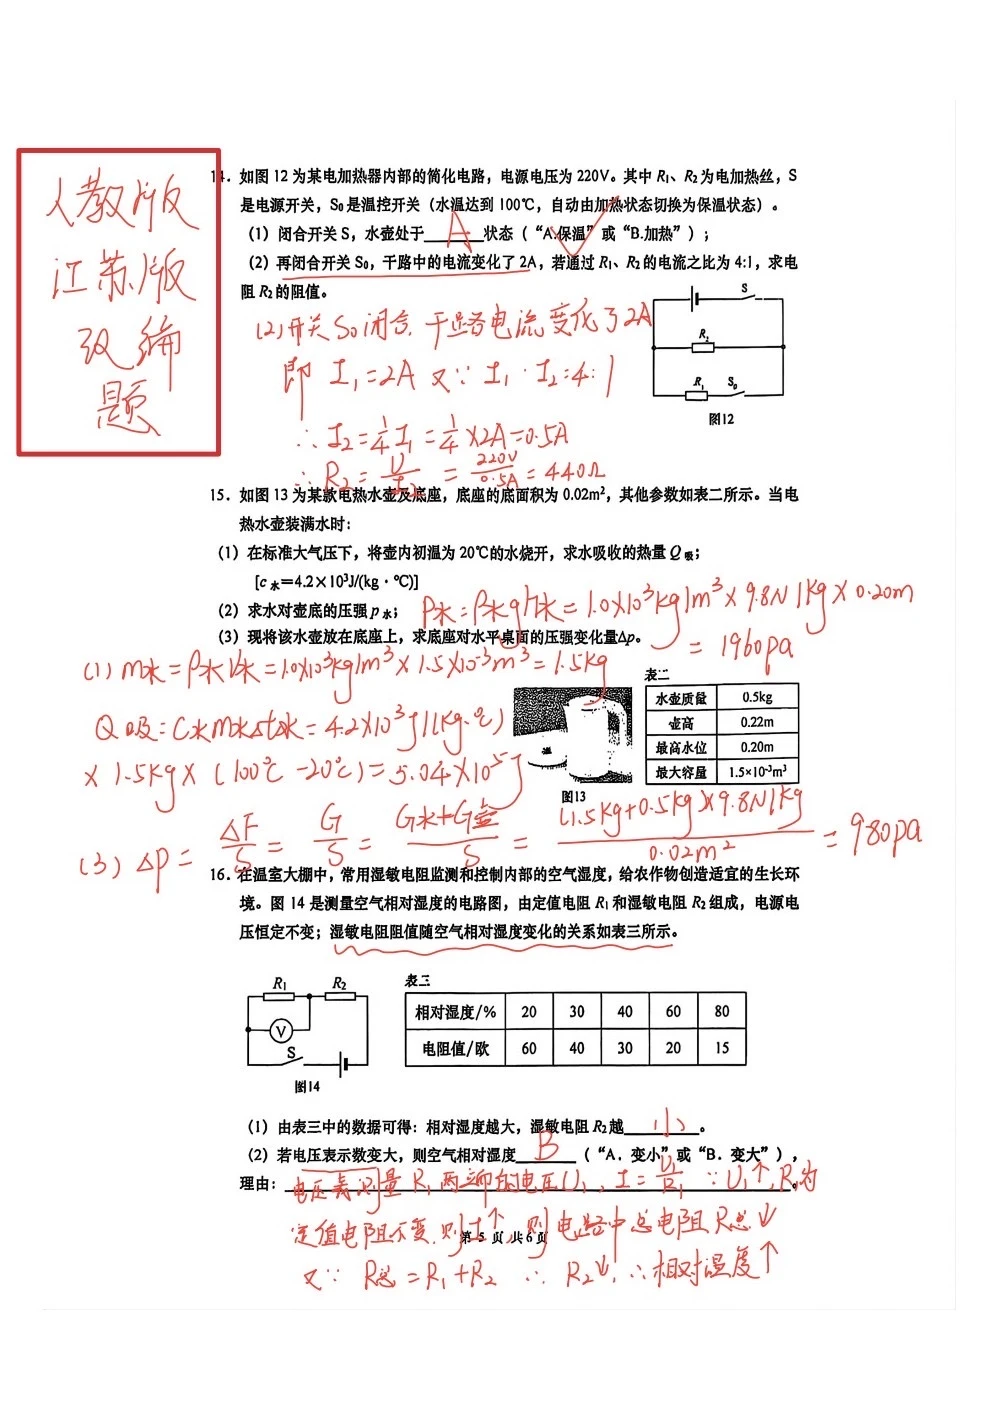 人教版
江苏版
改编
题
14. 如图 12 为某电加热器内部的简化电路，电源电压为 220V。其中 R₁、R₂ 为电加热丝，S
是电源开关，S₀ 是温控开关（水温达到 100℃，自动由加热状态切换为保温状态）。
（1）闭合开关 S，水壶处于 A 状态（“A.保温”或“B.加热”）；
（2）再闭合开关 S₀，干路中的电流变化了 2A，若通过 R₁、R₂ 的电流之比为 4:1，求电
阻 R₂ 的阻值。
(2)开关S₀闭合，干路电流变化了2A
即 I₁=2A 又∵ I₁:I₂=4:1
∴ I₂=1/4 I₁=1/4×2A=0.5A
∴ R₂=U/I₂=220V/0.5A=440Ω
S
R₂
R₁ S₀
图12
15. 如图 13 为某款电热水壶及底座，底座的底面积为 0.02m²，其他参数如表二所示。当电
热水壶装满水时：
（1）在标准大气压下，将壶内初温为 20℃的水烧开，求水吸收的热量 Q吸；
[c水＝4.2×10³J/(kg·℃)]
（2）求水对壶底的压强 p水；
P水=ρ水gh水=1.0×10³kg/m³×9.8N/kg×0.20m
=1960pa
（3）现将该水壶放在底座上，求底座对水平桌面的压强变化量Δp。
(1) m水=ρ水V水=1.0×10³kg/m³×1.5×10⁻³m³=1.5kg
Q吸=C水m水Δt水=4.2×10³J/(kg·℃)
×1.5kg×(100℃-20℃)=5.04×10⁵J
图13
表二
水壶质量 0.5kg
壶高 0.22m
最高水位 0.20m
最大容量 1.5×10⁻³m³
(3) ΔP=ΔF/S=G/S=G水+G壶/S=(1.5kg+0.5kg)×9.8N/kg/0.02m²=980pa
16. 在温室大棚中，常用湿敏电阻监测和控制内部的空气湿度，给农作物创造适宜的生长环
境。图 14 是测量空气相对湿度的电路图，由定值电阻 R₁ 和湿敏电阻 R₂ 组成，电源电
压恒定不变；湿敏电阻阻值随空气相对湿度变化的关系如表三所示。
R₁ R₂
V
S
图14
表三
相对湿度/% 20 30 40 60 80
电阻值/欧 60 40 30 20 15
（1）由表三中的数据可得：相对湿度越大，湿敏电阻 R₂ 越 小 。
（2）若电压表示数变大，则空气相对湿度 B （“A．变小”或“B．变大”），
理由： 电压表测量R₁两端的电压U₁，I=U₁/R₁ ∵U₁↑，R₁为
定值电阻不变，则I↑，则电路中总电阻R总↓
第 5 页 共 6 页
又∵ R总=R₁+R₂ ∴ R₂↓，∴相对湿度↑